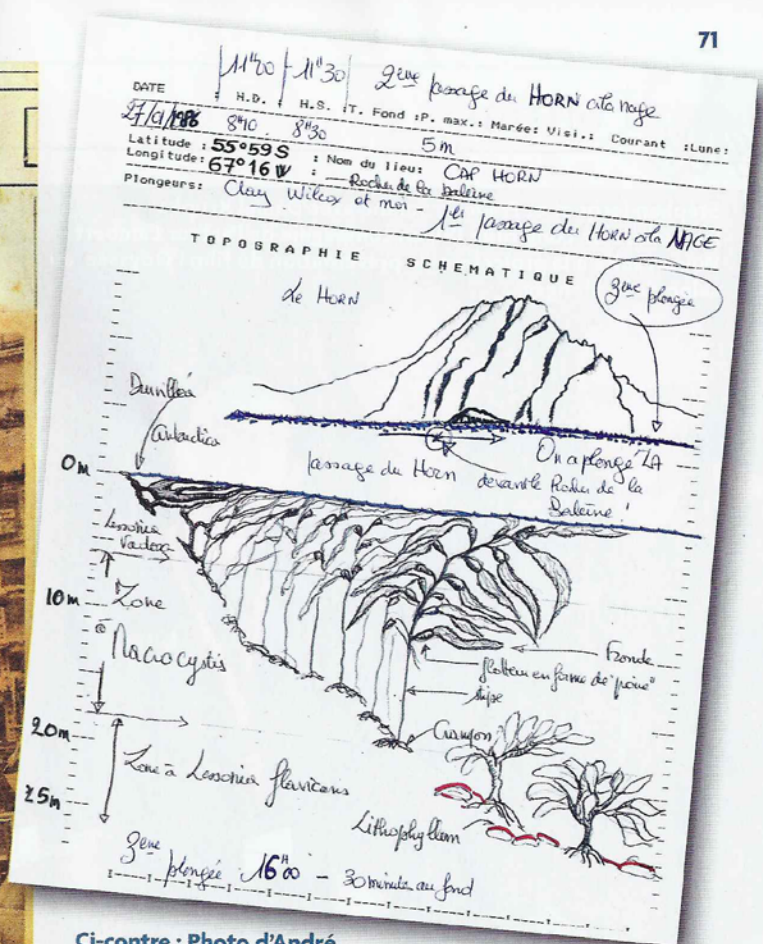 71
11H00 11H30 2ème passage du HORN à la nage
DATE H.D. : H.S. :T. Fond :P. max.: Marée: Visi.: Courant :Lune:
27/01/1986 8H10 8H30 5m
Latitude : 55°59 S : Nom du lieu: CAP HORN
Longitude: 67°16 W : Rocher de la baleine
Plongeurs: Clay Wilcox et moi - 1er passage du HORN à la NAGE
TOPOGRAPHIE SCHEMATIQUE
Le HORN
3ème plongée
Durvilléa
Antarctica
On a plongé LA
passage du Horn devant le Rocher de la
Baleine !
0m
Lessonia
Vadosa
10m
Zone
à
Macrocystis
Fronde
flotteur en forme de "poire"
stipe
Crampon
20m
Zone à Lessonia flavicans
25m
Lithophyllum
3ème plongée 16H00 - 30 minutes au fond
Ci-contre : Photo d'André